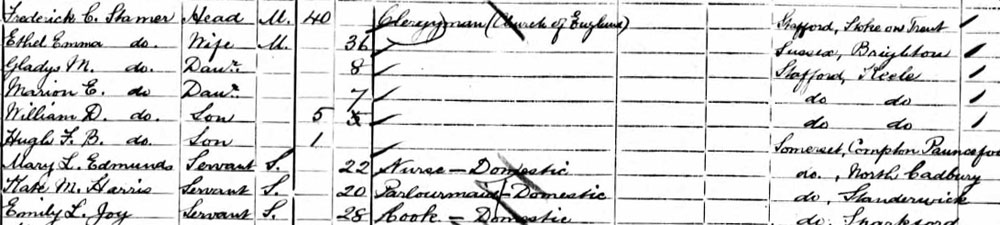 Frederick C. Stamer Head M. 40 Clergyman (Church of England) Stafford, Stoke on Trent
Ethel Emma do. Wife M. 36 Sussex, Brighton
Gladys M. do. Daur. 8 Stafford, Keele
Marion E. do Daur. 7 do do
William D. do. Son 5 do do
Hugh F. B. do. Son 1 Somerset, Compton
Mary L. Edmunds Servant S. 22 Nurse – Domestic do., North Cadbury
Kate M. Harris Servant S. 20 Parlourmaid – Domestic do, Standerwick
Emily L. Joy Servant S. 28 Cook – Domestic do, Sparkford